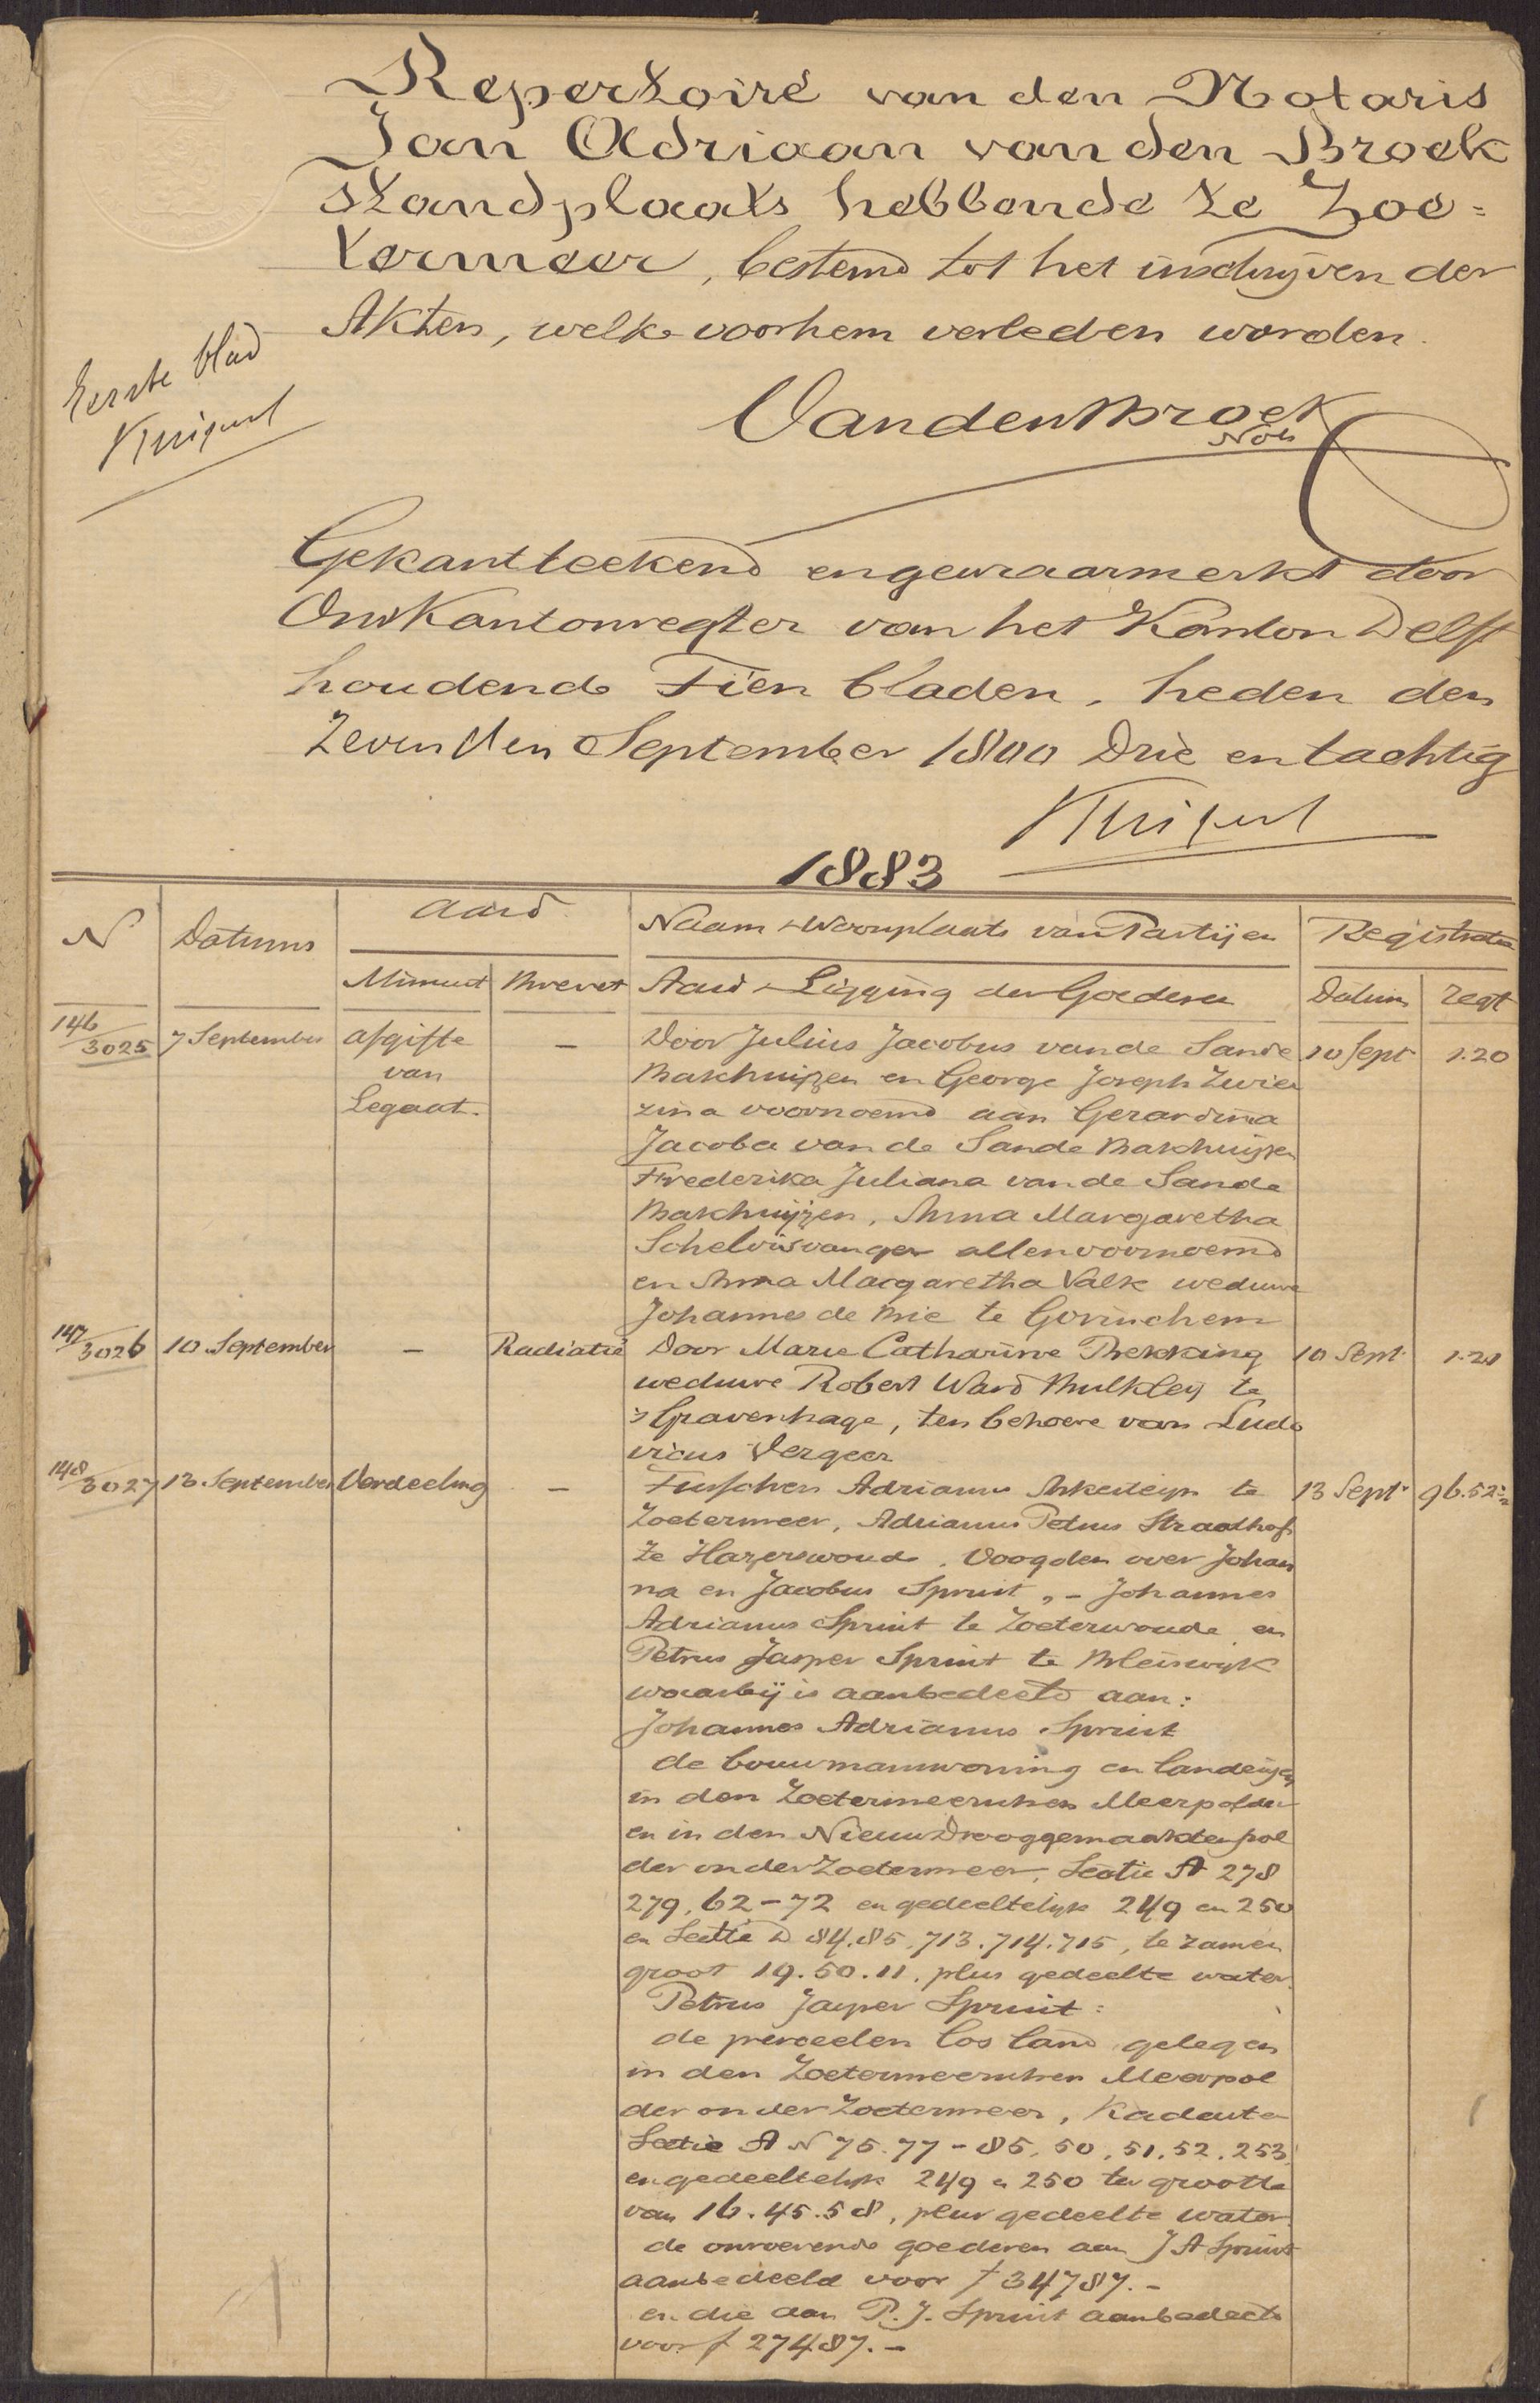 Repertoire van den Notaris
Jan Adriaan van den Broek
Standplaats hebbende te Zoe=
termeer, bestemd tot het inschrijven der
Akten, welke voor hem verleden worden.
Eerste blad
VandenBroek
Nots
Gekantteekend en gewaarmerkt door
Ons Kantonregter van het Kanton Delft
houdende Tien bladen, heden den
Zevenden September 1800 Drie en tachtig
1883
N Datums Aard Naam & Woonplaats van Partijen Registratie
Minuut Brevet Aard & Ligging der Goederen Datum regt
146/3025 7 September afgifte — Door Julius Jacobus van de Sande 10 Sept 1.20
van Bakhuijzen en George Joseph Zwier
Legaat. zina voornoemd aan Gerardina
Jacoba van de Sande Bakhuijzen
Frederika Juliana van de Sande
Bakhuijzen, Anna Margaretha
Schelvisvanger allen voornoemd
en Anna Margaretha Valk weduwe
Johannes de Brie te Gorinchem
147/3026 10 September — Radiatie Door Marie Catharine Brekking 10 Sept. 1.20
weduwe Robert Ward Bulkley te
's Gravenhage, ten behoeve van Ludo
vicus Vergeer
148/3027 13 September Verdeeling — Tusschen Adrianus Ankersteijn te 13 Sept. 96.52
Zoetermeer, Adrianus Petrus Straathof
te Hazerswoude, Voogden over Johan
na en Jacobus Spruit, - Johannes
Adrianus Spruit te Zoeterwoude en
Petrus Jasper Spruit te Bleiswijk
waarbij is aanbedeeld aan:
Johannes Adrianus Spruit
de bouwmanswoning en landerijen
in den Zoetermeerschen Meerpolder
en in den Nieuw Drooggemaakten pol
der onder Zoetermeer, Sectie A 278
279, 62-72 en gedeeltelijk 249 en 250
en Sectie D 84.85.713.714.715, te zamen
groot 19.50.11. plus gedeelte water.
Petrus Jasper Spruit:
de perceelen los land gelegen
in den Zoetermeerschen Meerpol
der onder Zoetermeer, Kadaster
Sectie A N 75.77-85, 50, 51. 52. 253
en gedeeltelijk 249 & 250 ter grootte
van 16.45.58, plus gedeelte water.
de onroerende goederen aan J A Spruit
aanbedeeld voor f 34787.-
en die aan P. J. Spruit aanbedeeld
voor f 27487.-